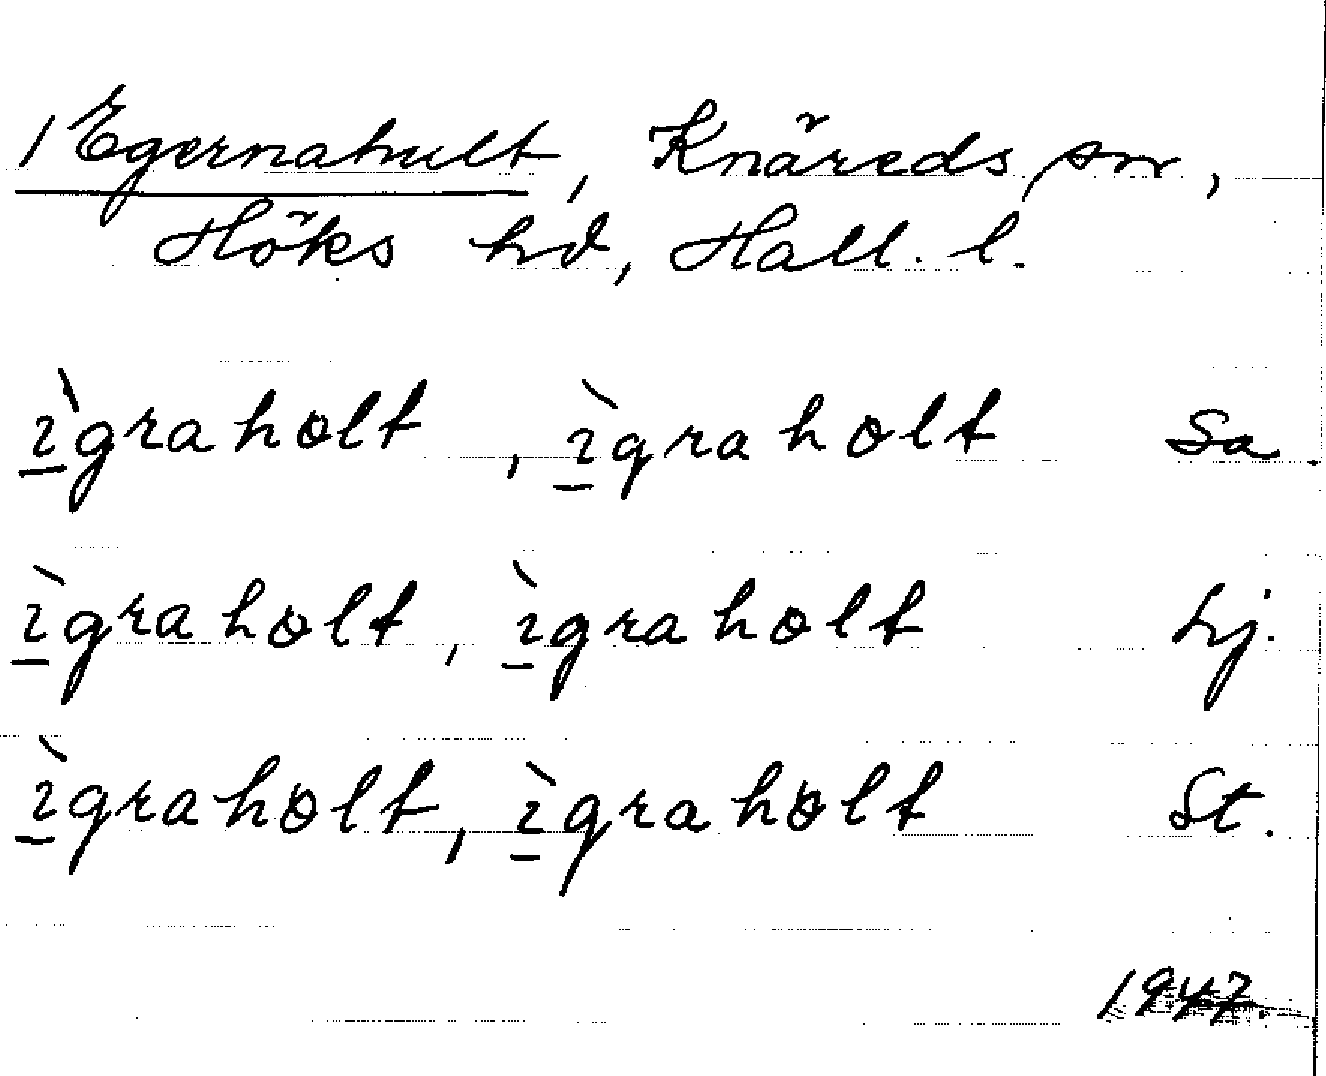 /Egernahult, Knäreds sn,
Höks hd, Hall. l.
ı̲̀graholt, ı̲̀graholt Sa.
ı̲̀graholt, ı̲̀graholt Lj.
ı̲̀graholt, ı̲̀graholt St.
1947.